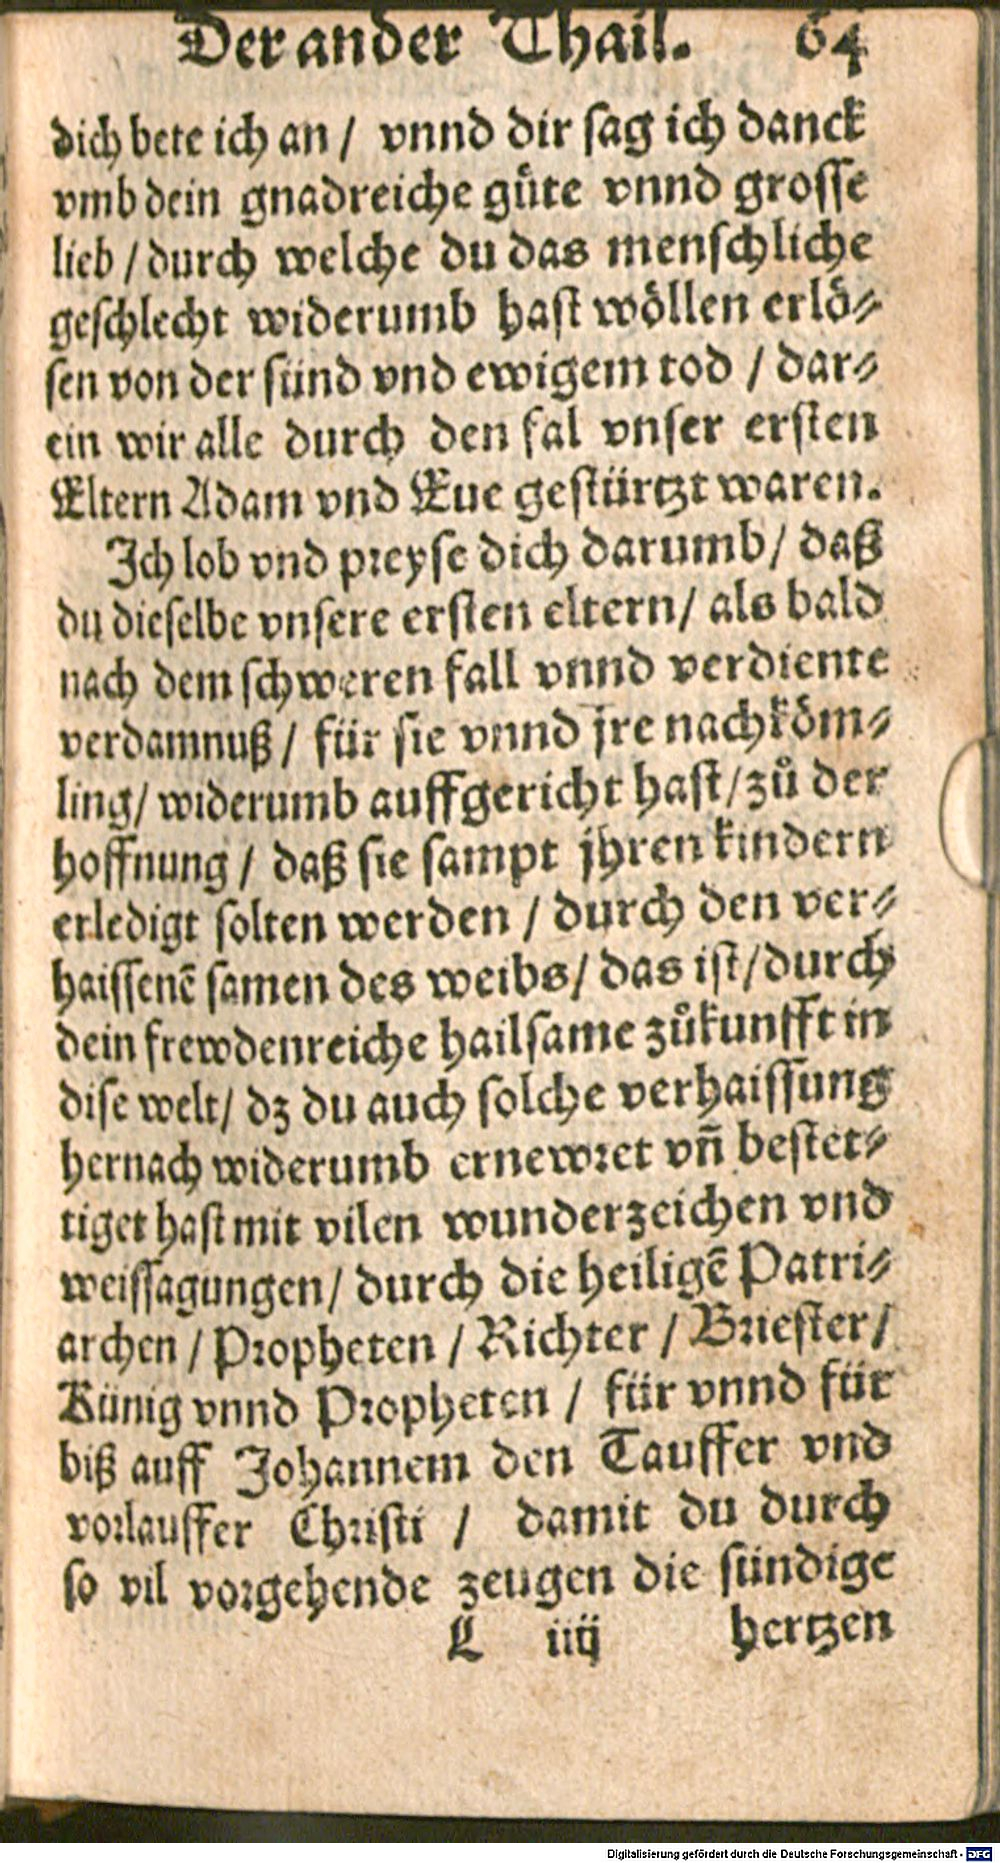 Der ander Thail. 64
dich bete ich an / vnnd dir sag ich danck
vmb dein gnadreiche gůte vnnd grosse
lieb / durch welche du das menschliche
geschlecht widerumb hast wöllen erlö⸗
sen von der sünd vnd ewigem tod / dar⸗
ein wir alle durch den fal vnser ersten
Eltern Adam vnd Eue gestürtzt waren.
Ich lob vnd preyse dich darumb / daß
du dieselbe vnsere ersten eltern / als bald
nach dem schweren fall vnnd verdiente
verdamnuß / für sie vnnd jre nachköm⸗
ling / widerumb auffgericht hast / zů der
hoffnung / daß sie sampt jhren kindern
erledigt solten werden / durch den ver⸗
haissenẽ samen des weibs / das ist / durch
dein frewdenreiche hailsame zůkunfft in
dise welt / dz du auch solche verhaissung
hernach widerumb ernewret vñ bestet⸗
tiget hast mit vilen wunderzeichen vnd
weissagungen / durch die heiligẽ Patri⸗
archen / Propheten / Richter / Briester /
Künig vnnd Propheten / für vnnd für
biß auff Johannem den Tauffer vnd
vorlauffer Christi / damit du durch
so vil vorgehende zeugen die sündige
L iiij hertzen
Digitalisierung gefördert durch die Deutsche Forschungsgemeinschaft - DFG